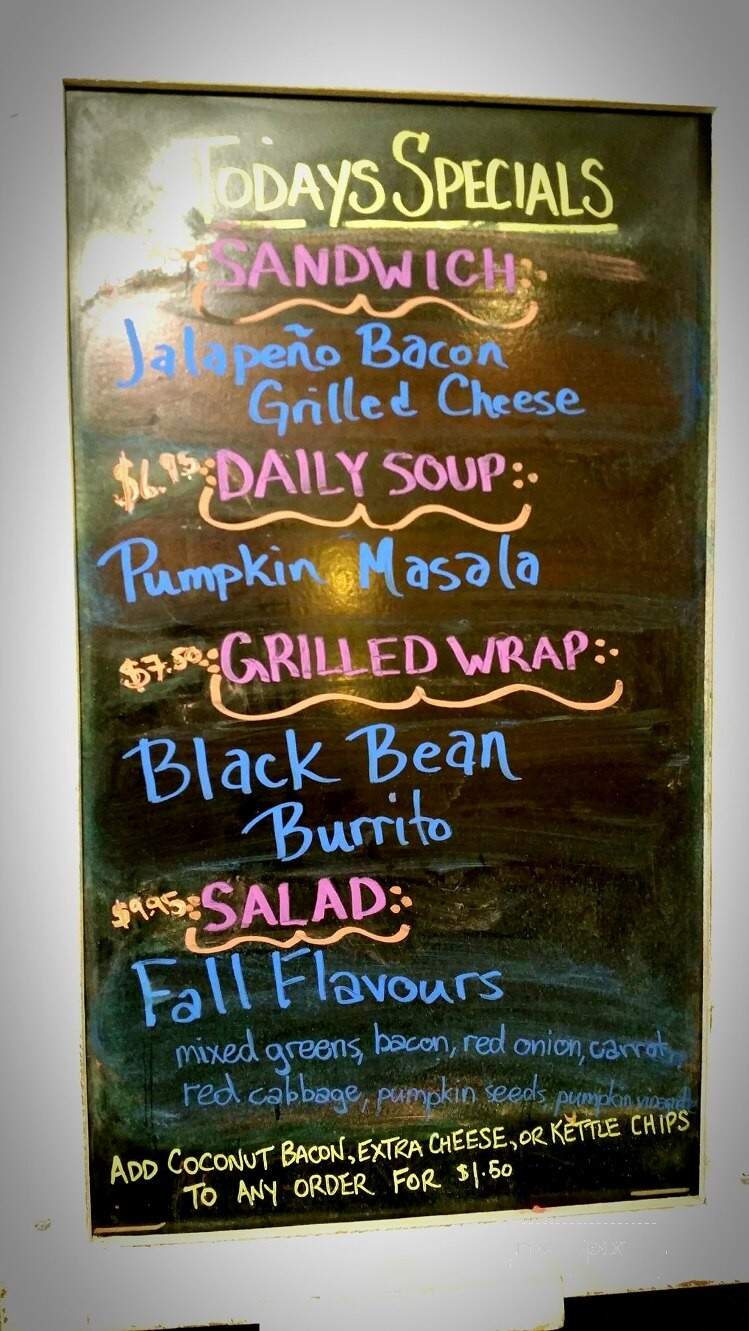 TODAYS SPECIALS
SANDWICH
Jalapeño Bacon
Grilled Cheese
$6.95 DAILY SOUP
Pumpkin Masala
$7.50 GRILLED WRAP
Black Bean
Burrito
$9.95 SALAD
Fall Flavours
mixed greens, bacon, red onion, carrot,
red cabbage, pumpkin seeds, pumpkin
ADD COCONUT BACON, EXTRA CHEESE, OR KETTLE CHIPS
TO ANY ORDER FOR $1.50